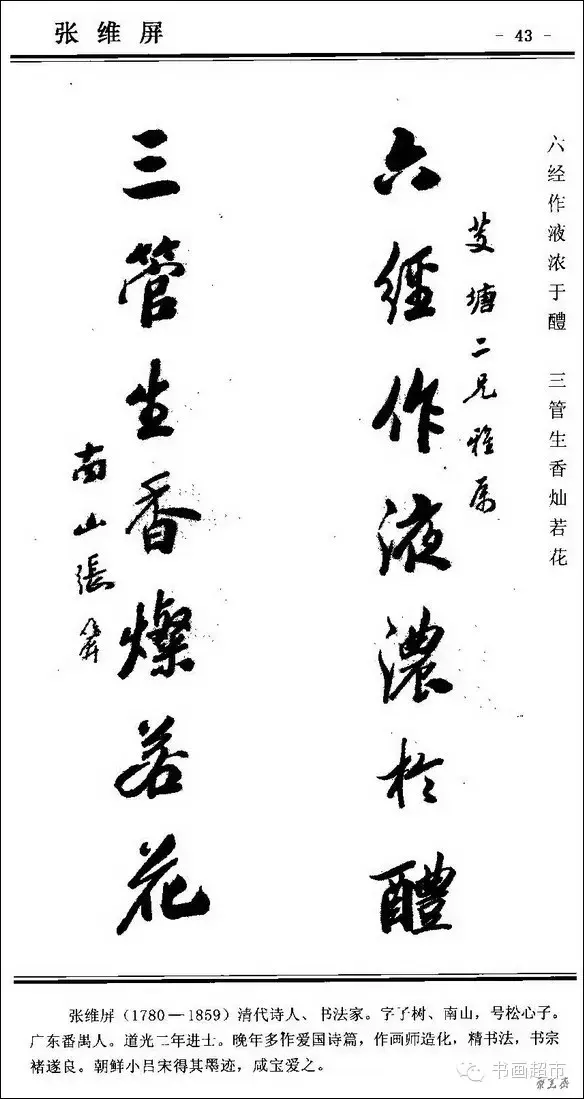 张维屏
- 43 -
六经作液浓于醴 三管生香灿若花
六經作液濃於醴
艾塘二兄雅属
三管生香燦若花
南山張屏
张维屏(1780—1859)清代诗人、书法家。字子树、南山,号松心子。
广东番禺人。道光二年进士。晚年多作爱国诗篇,作画师造化,精书法,书宗
褚遂良。朝鲜小吕宋得其墨迹,咸宝爱之。
书画超市